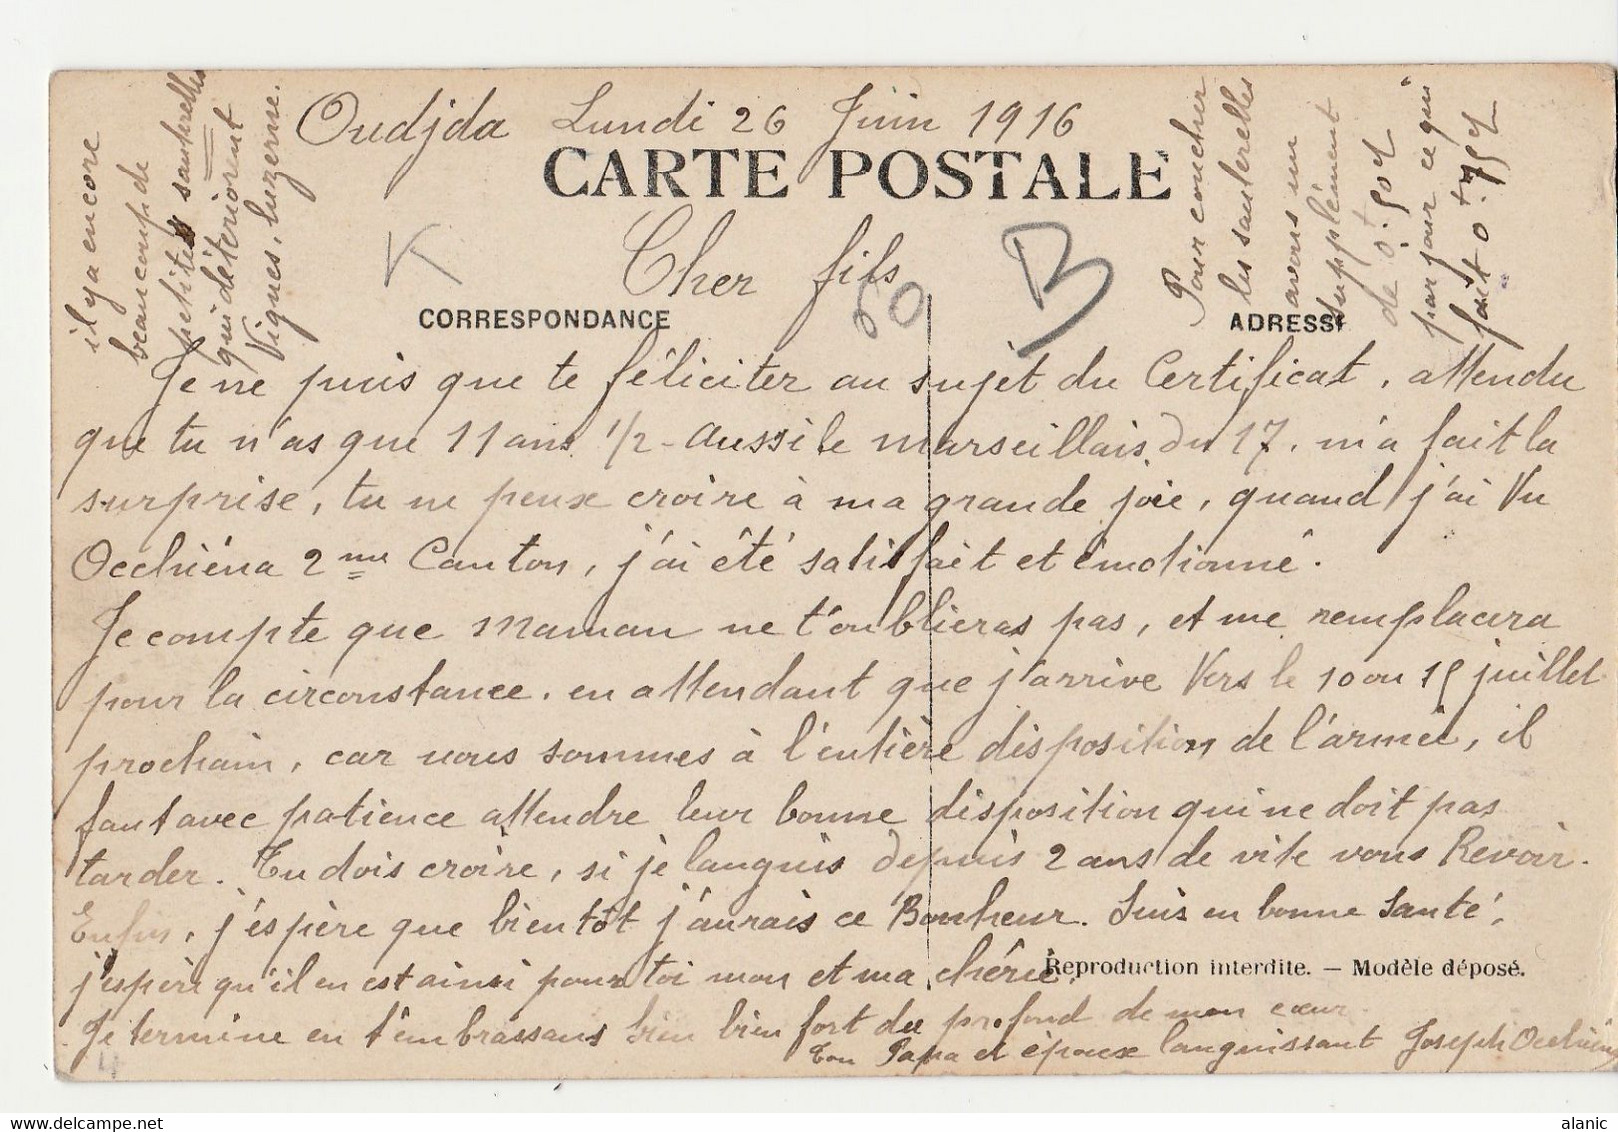 Oudjda Lundi 26 Juin 1916
CARTE POSTALE
Cher fils
K
60
B
CORRESPONDANCE
ADRESSE
Je ne puis que te féliciter au sujet du Certificat, attendu
que tu n'as que 11 ans 1/2 - Aussi le marseillais du 17. m'a fait la
surprise, tu ne peux croire à ma grande joie, quand j'ai Vu
Occhiéna 2me Canton, j'ai été satisfait et émotionné.
Je compte que Maman ne t'oublieras pas, et me remplacera
pour la circonstance. en attendant que j'arrive Vers le 10 ou 15 juillet
prochain, car nous sommes à l'entière disposition de l'armée, il
faut avec patience attendre leur bonne disposition qui ne doit pas
tarder. Tu dois croire, si je languis depuis 2 ans de vite vous Revoir.
Enfin, j'espère que bientôt j'aurais ce Bonheur. Suis en bonne Santé,
j'espère qu'il en est ainsi pour toi mon et ma chérie.
Reproduction interdite. — Modèle déposé.
Je termine en t'embrassans bien bien fort du profond de mon cœur.
Ton Papa et époux languissant Joseph Occhiéna
il y a encore
beaucoup de
petites sauterelles
qui détériorent
Vignes, luzerne.
Pour coucher
les sauterelles
avons un
supplément
de 0f.50c
par jour ce qui
fait 0f.75c
delcampe.net
alanic